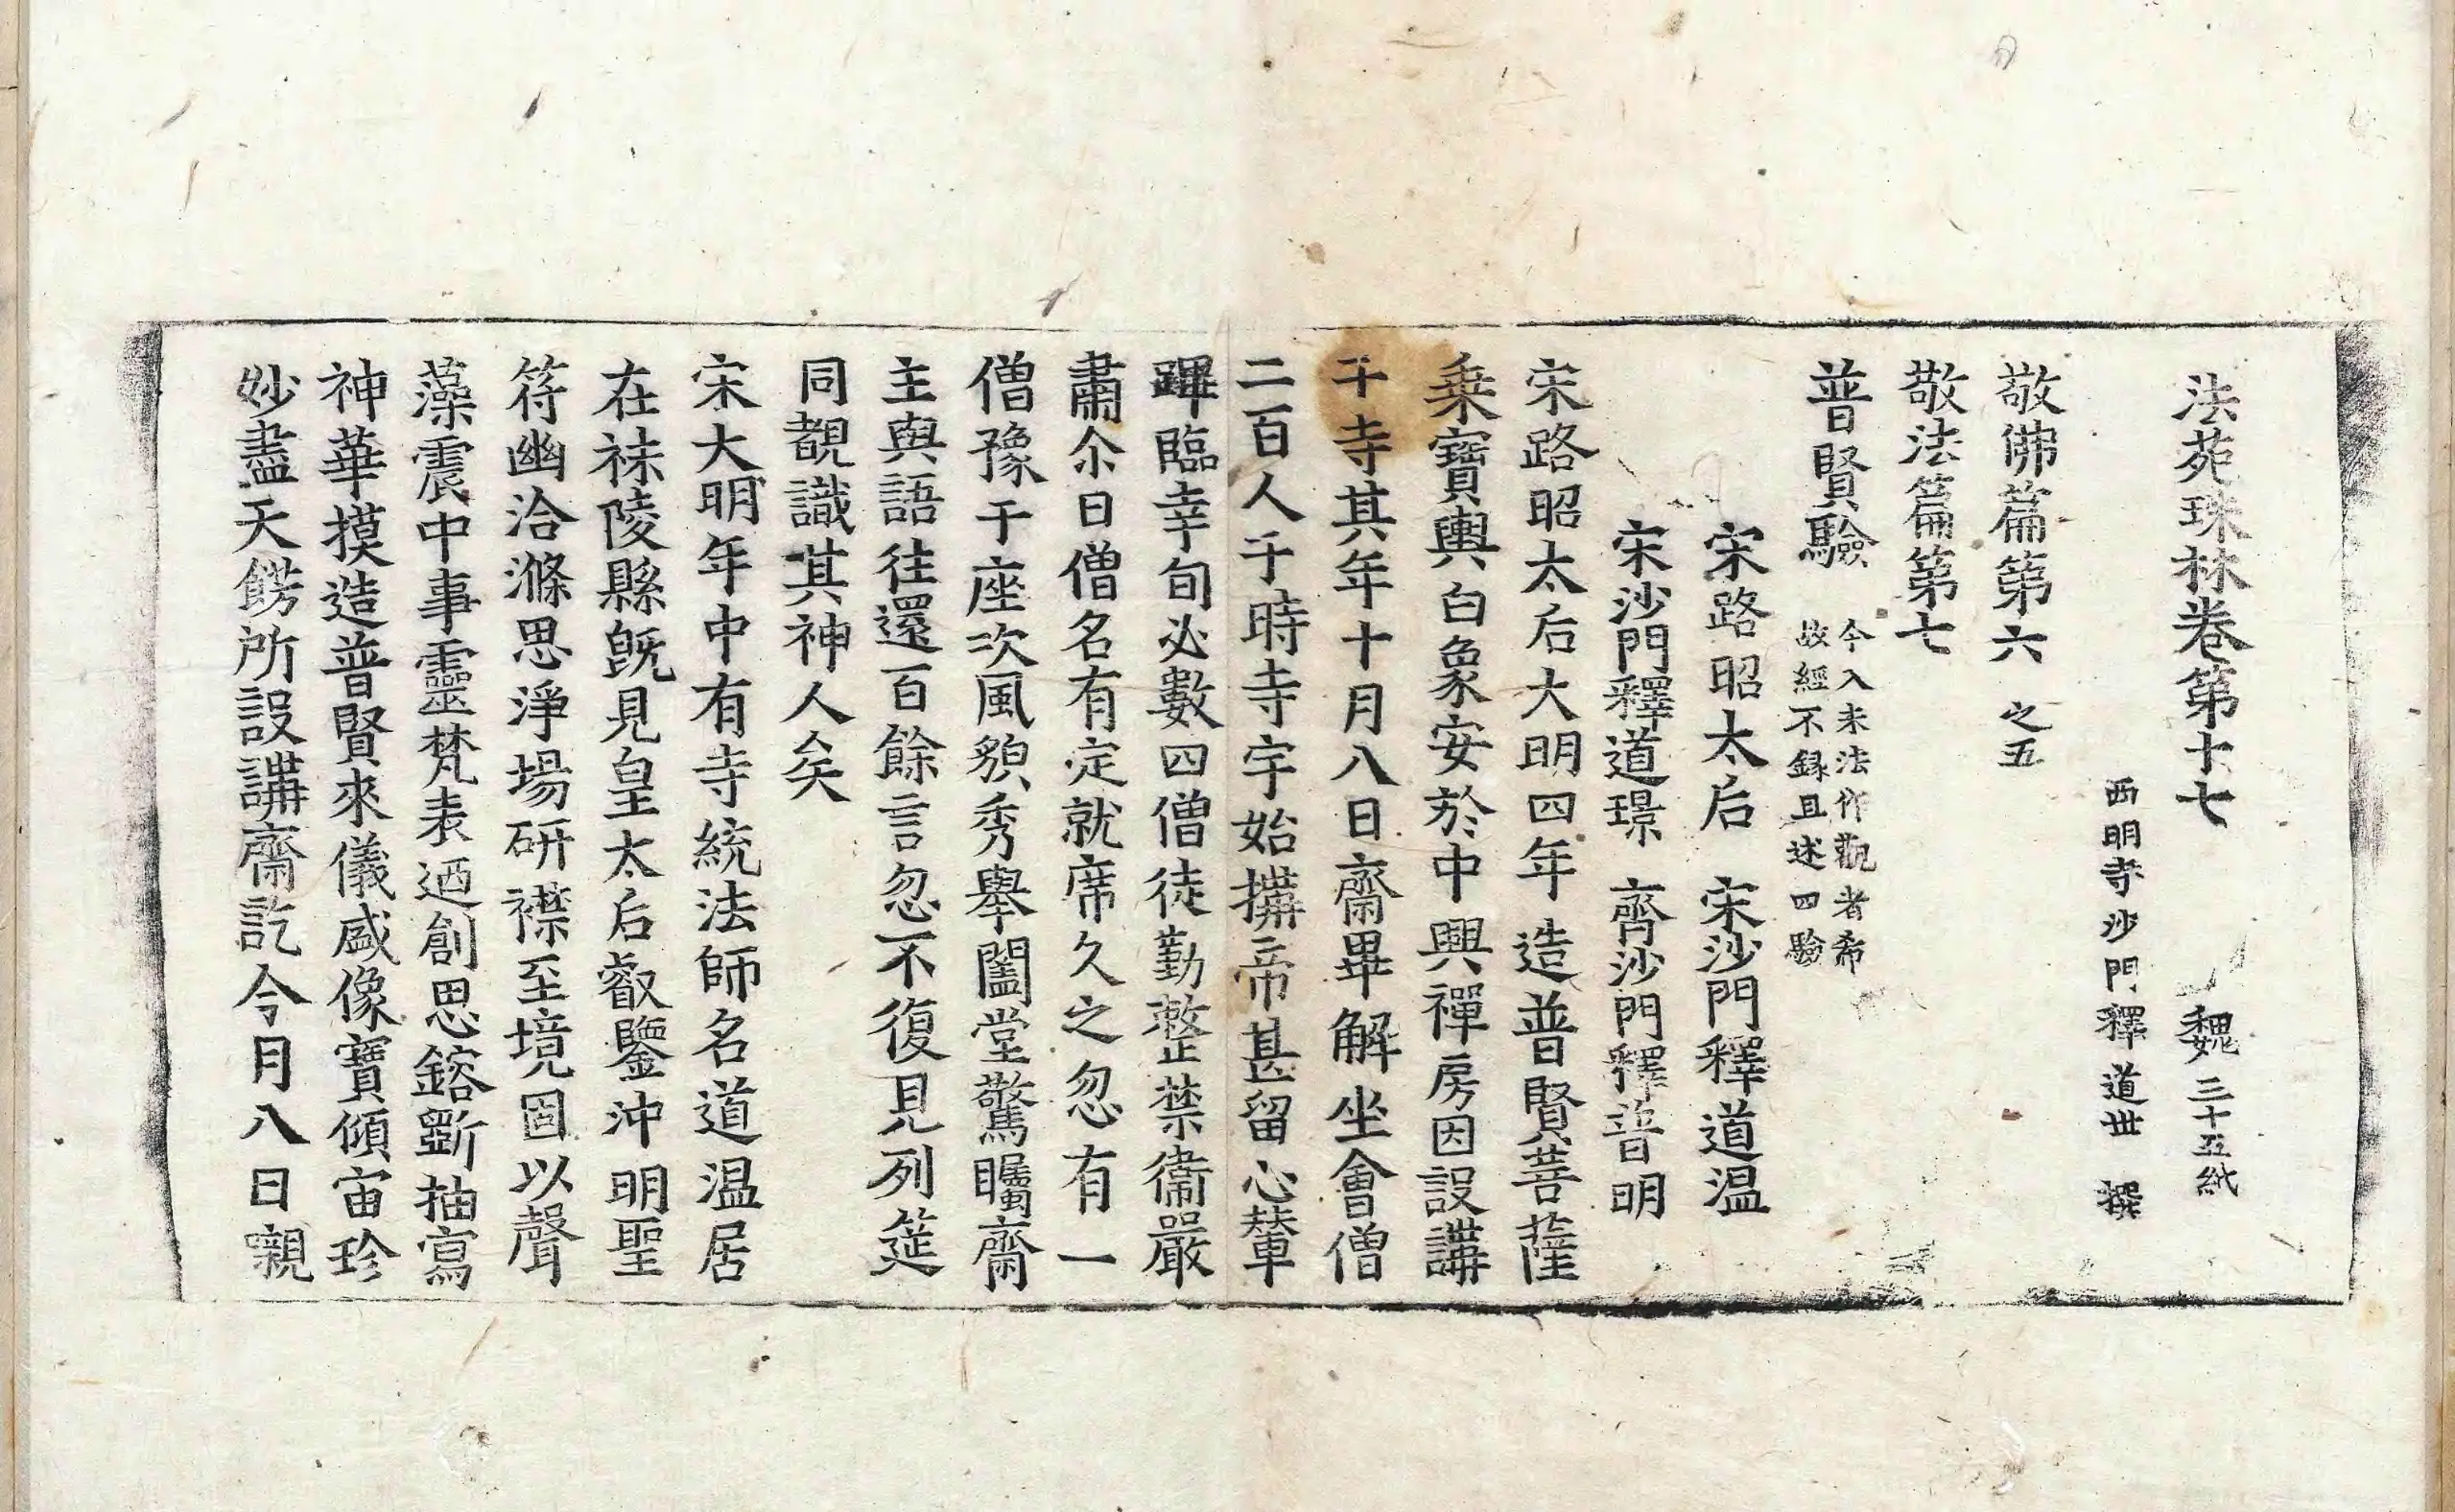 法苑珠林卷第十七　魏　三十五紙
西明寺沙門釋道世　撰
敬佛篇第六　之五
敬法篇第七
普賢驗　今入末法作觀者希
故經不録且述四驗
宋路昭太后　宋沙門釋道温
宋沙門釋道璟　齊沙門釋普明
宋路昭太后大明四年造普賢菩薩
乗寶輿白象安於中興禪房因設講
千寺其年十月八日齋畢解坐會僧
二百人于時寺宇始搆帝甚留心輦
蹕臨幸旬必數四僧徒勤整禁衞嚴
肅尒日僧名有定就席久之忽有一
僧豫于座次風貌秀舉闔堂驚矚齋
主與語往還百餘言忽不復見列筵
同覩識其神人矣
宋大明年中有寺統法師名道温居
在秣陵縣既見皇太后叡鑒沖明聖
符幽洽滌思淨場研襟至境固以聲
藻震中事靈梵表迺創思鎔斲抽寫
神華摸造普賢來儀盛像寶傾宙珍
妙盡天餝所設講齋訖今月八日嚫